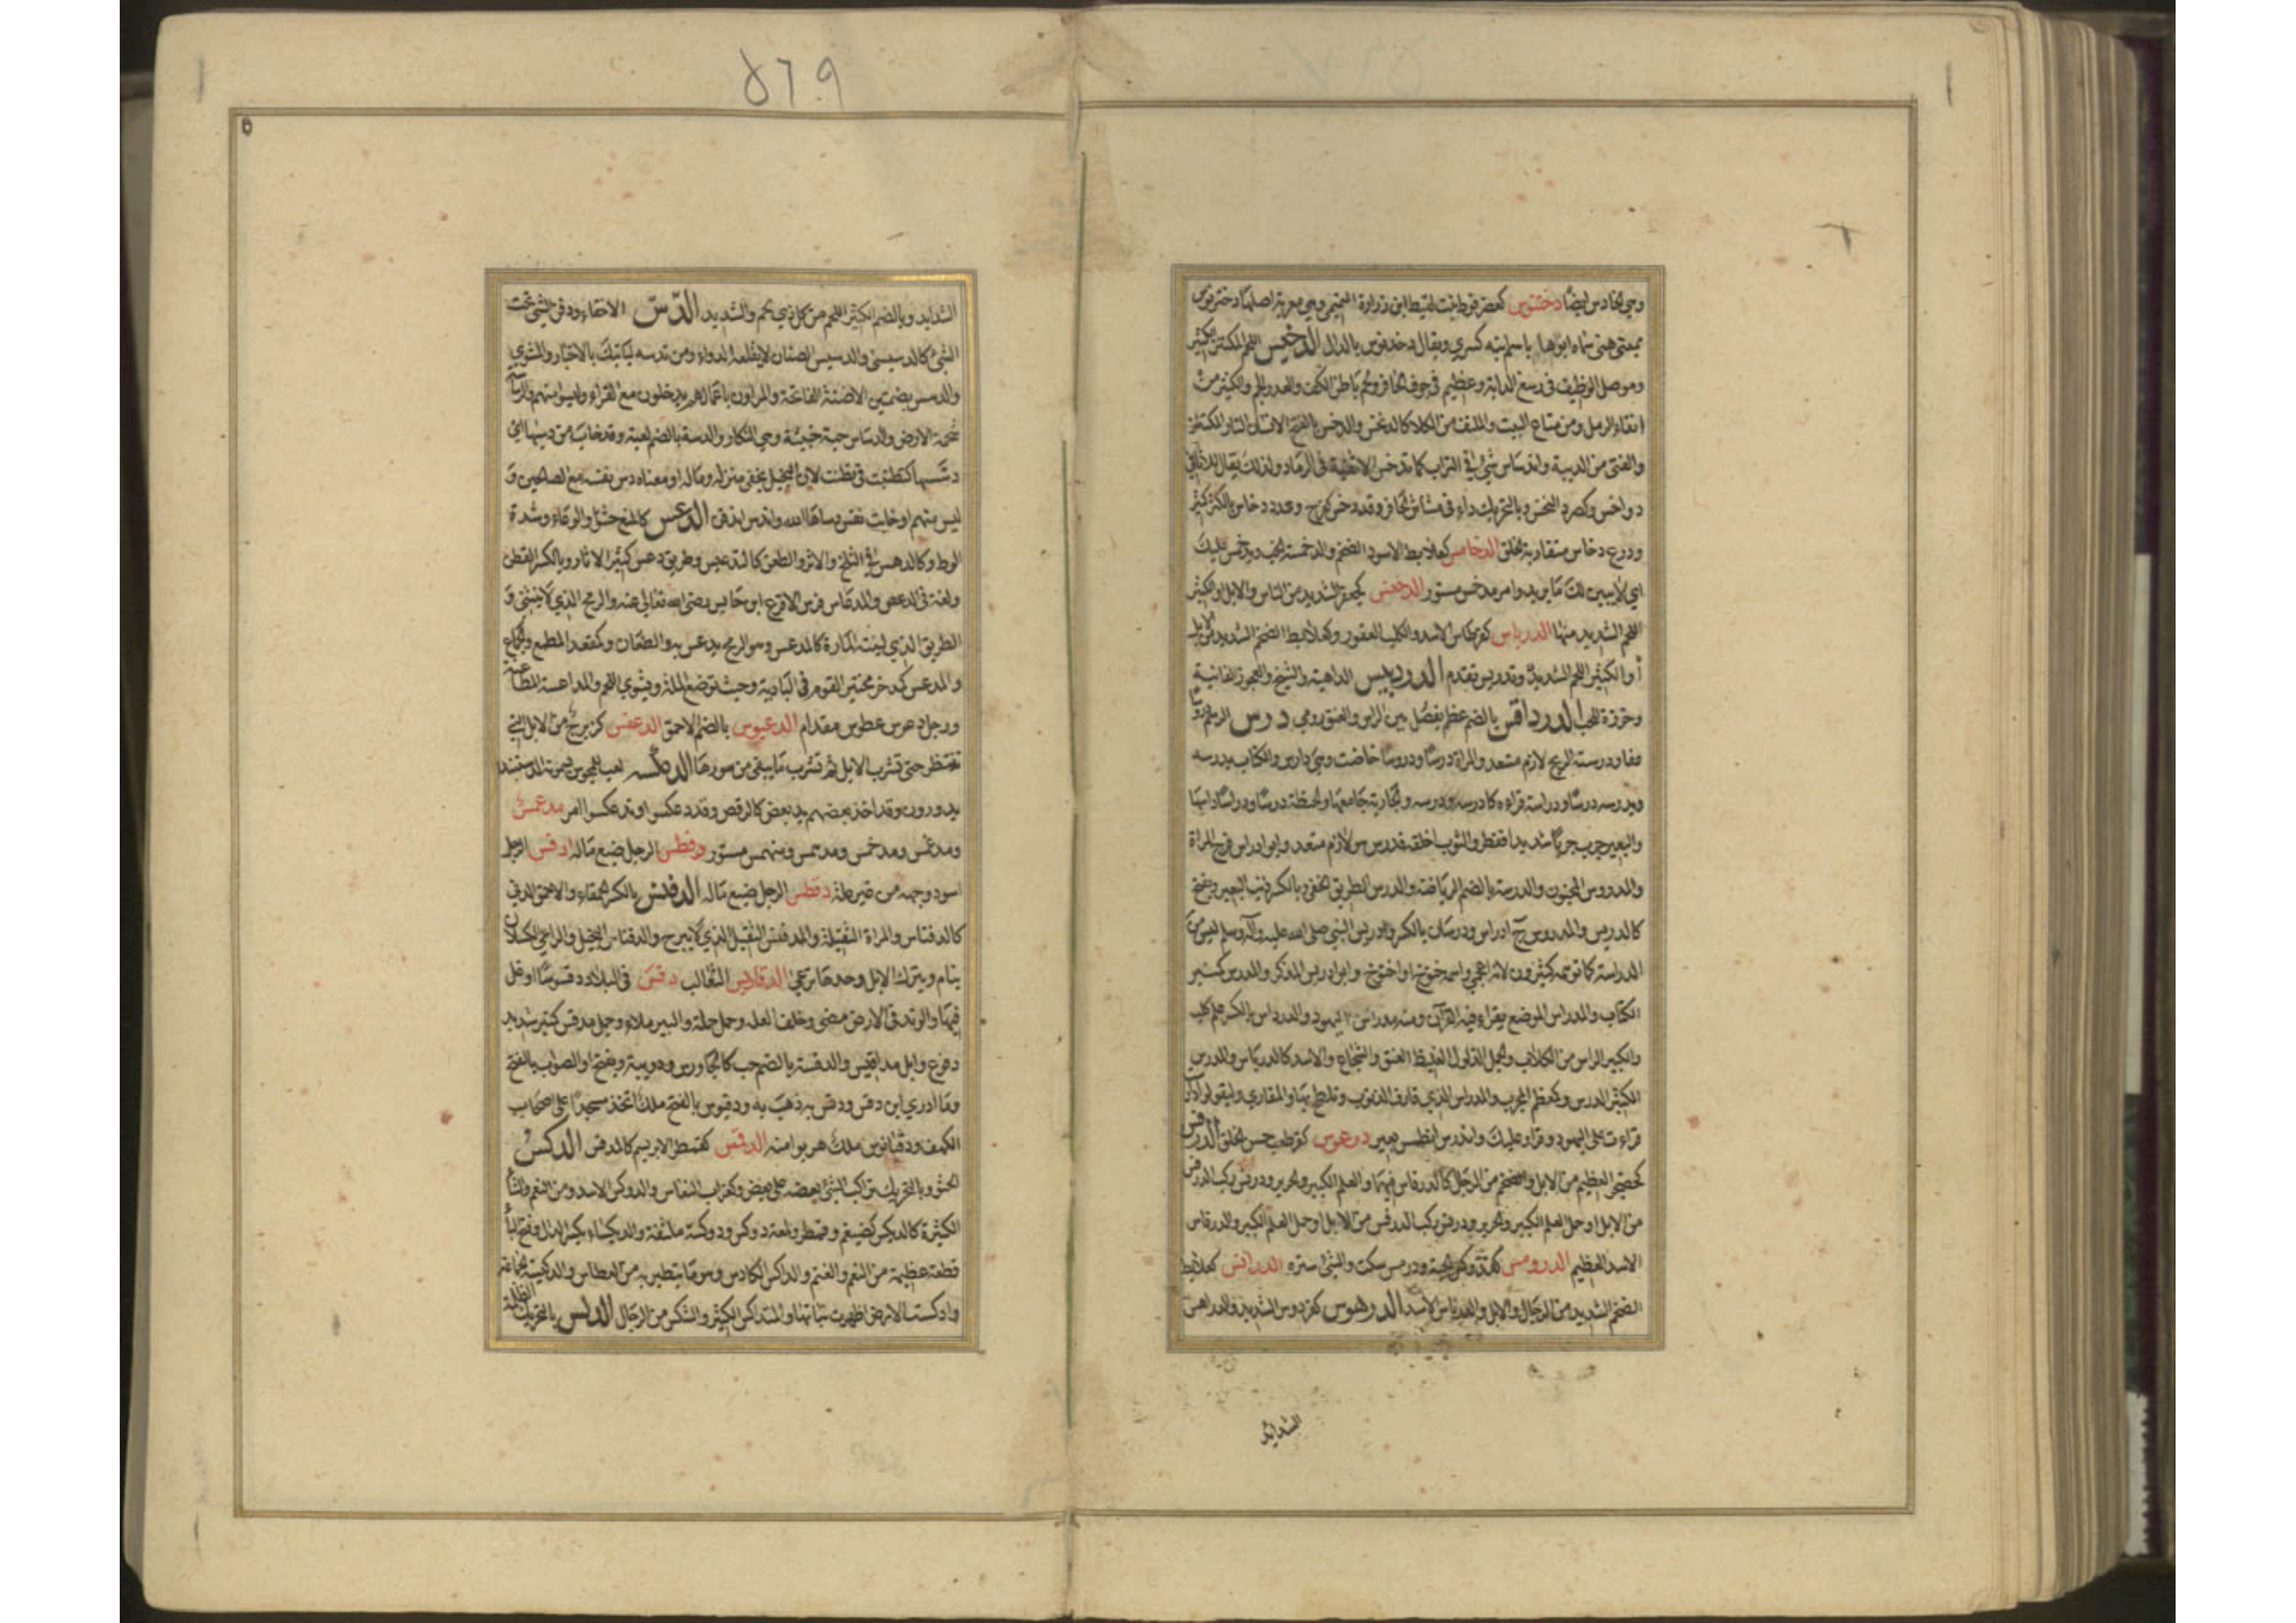 وهي الحنادس ايضا دختنوس كعضرفوط بنت لقيط ابن زرارة التميمي وهي معربة اصلها دختر نوش
بمعنى هنى سماه ابوها باسم ابنه كسرى ويقال دخدنوس بالدال الدخيس اللحم المكتنز الكثير
وموصل الوظيف في رسغ الدابة وعظيم في جوف الحافر ولحم باطن الكف والعدد الجم والكثير من
انقاء الرمل ومن متاع البيت والملتف من الكلا كالدخس والدخس بالفتح الانسان التار المكتنز
والفتى من الدببة واندساس شئ في التراب كما تدخس الاثفية في الرماد ولذلك يقال للاثافي
دواخس وكصرد التخس وبالتحريك داء في مشاش الحافر وقد دخس كفرح وعدد دخاس بالكسر كثير
ودرع دخاس متقاربة الحلق الدخامس كعلابط الاسود الضخم والدخمسة الخب ويدخمس عليك
اي لا يبين لك ما يريد وامر مدخمس مستور الدخنس كجعفر الشديد من الناس والابل او الكثير
اللحم الشديد منها الدرباس كقرطاس الاسد والكلب العقور وكعلابط الضخم الشديد من الابل
أو الكثير اللحم الشديد وتدربس تقدم الدردبيس الداهية والشيخ والعجوز الفانية
وخرزة للحب الدرداقس بالضم عظم يفصل بين الراس والعنق رومي درس الرسم دروسا
عفا ودرسته الريح لازم متعد والمراة درسا ودروسا حاضت وهي دارس والكتاب يدرسه
ويدرسه درسا ودراسة قراءه كادرسه ودرسه والجارية جامعها والحنطة درسا ودراسا داسها
والبعير جرب جربا شديدا فقطر والثوب اخلقه فدرس هو لازم متعد وابو ادراس فرج المراة
والمدروس المجنون والدرسة بالضم الرياضة والدرس الطريق الخفي وبالكسر ذنب البعير ويفتح
كالدريس والمدروس ج ادراس ودرسان بالكسر وادريس النبي صلى الله عليه وآله وسلم ليس من
الدراسة كما توهمه كثيرون لانه اعجمي واسمه خنوخ او اخنوخ وابو ادريس الذكر والمدرس كمنبر
الكتاب والمدراس الموضع يقراء فيه القرآن ومنه مدراس اليهود والدرواس بالكسر علم كلب
والكبير الراس من الكلاب والجمل الذلول الغليظ العنق والشجاع والاسد كالدرباس والمدرس
الكثير الدرس وكمعظم المجرب والمدارس الذي قارف الذنوب وتلطخ بها والمقاري وليقولوا دارست
قراءت على اليهود وقراوا عليك واندرس انطمس بعير درعوس كقرطعب حسن الخلق الدرفس
كحضجر العظيم من الابل والضخم من الرجال كالدرفاس فيهما والعلم الكبير والحرير ودرفس ركب الدرفس
من الابل او حمل العلم الكبير والحرير ودرفس ركب الدرفس من الابل او حمل العلم الكبير والدرفاس
الاسد العظيم الدرومس كفدوكس الحية ودرمس سكت والشئ ستره الدرانس كعلابط
الضخم الشديد من الرجال والابل والدرناس الاسد الدرهوس كفردوس الشديد والدراهس
الشدايد
٥٦٩
الشدايد وبالضم الكثير اللحم من كل ذي لحم والشديد الدس الاخفاء ودفن الشئ تحت
الشئ كالدسيسى والدسيس الصنان لا يقلعه الدواء ومن تدسه ليأتيك بالاخبار والمشوي
والدسس بضمتين الاصنة الفائحة والمراون باعمالهم يدخلون مع القراء وليسوا منهم والدساسة
شحمة الارض والدساس حية خبيثة وهي النكاز والدسة بالضم لعبة وقد خاب من دسيها اي
دسسها كتظنيت في تظننت لان البخيل يخفي منزله وماله او معناه دس نفسه مع الصالحين و
ليس منهم او خابت نفس دساها الله واندس اندفن الدعس كالمنع حشو الوعاء وشدة
الوط وكالدهس في الثلج والاثر والطعن كالتدعيس وطريق دعس كثير الاثار وبالكسر القطن
ولغة في الدعص والمدعاس فرس الاقرع ابن حابس رضي الله تعالى عنه والرمح الذي لا ينثني و
الطريق الذي لينته المارة كالمدعس وهو الرمح يدعس به والطعان وكمقعد المطمع والجماع
والمدعس كمدخر مختبز القوم في البادية وحيث توضع الملة ويشوى اللحم والمداعسة المطاعنة
ورجل دعوس عطوس مقدام الدعبوس بالضم الاحمق الدعفس كزبرج من الابل التي
تنتظر حتى تشرب الابل ثم تشرب ما يبقى من سورها الدعكسة لعب للمجوس يسمونه الدستبند
يدورون وقد اخذ بعضهم يد بعض كالرقص وقد دعكسوا وتدعكسوا امر مدغمس
ومدعمس ومدخمس ومدهمس ومنهمس مستور دفطس الرجل ضيع ماله ادفس الرجل
اسود وجهه من غير علة دفطس الرجل ضيع ماله الدفنس بالكسر الحمقاء والاحمق الدني
كالدفناس والمراة الثقيلة والمدفنس الثقيل الذي لا يبرح والدفناس البخيل والراعي الكسلان
ينام ويترك الابل وحدها ترعى الدقاريس الثعالب دقس في البلاد دقوسا اوغل
فيها والوتد في الارض مضى وخلف العدو حمل حملة والبير ملاء وجمل مدقس كمنبر شديد
دفوع وابل مداقيس والدقسة بالضم حب كالجاورس ودويبة ويفتح او الصواب بالفتح
وما ادري اين دقس ودقس به ذهب به ودقيوس بالفتح ملك اتخذ مسجدا على اصحاب
الكهف ودقيانوس ملك هربوا منه الدقمس كقمطر الابريسم كالمدقس الدكس
الحثو وبالتحريك تراكب الشئ بعضه على بعض وكغراب النعاس والدوكس الاسد ومن النعم والشاء
الكثيرة كالديكس كضيغم وقمطر ولمعة دوكس ودوكسة ملتفة والديكساء بكسر الدال وفتح الياء
قطعة عظيمة من النعم والغنم والداكس الكادس وهو ما يتطير به من العطاس والدكيسة الجماعة
وادكست الارض اظهرت نباتها والمتداكس الكثير والشكس من الرجال الدلس بالتحريك الظلمة